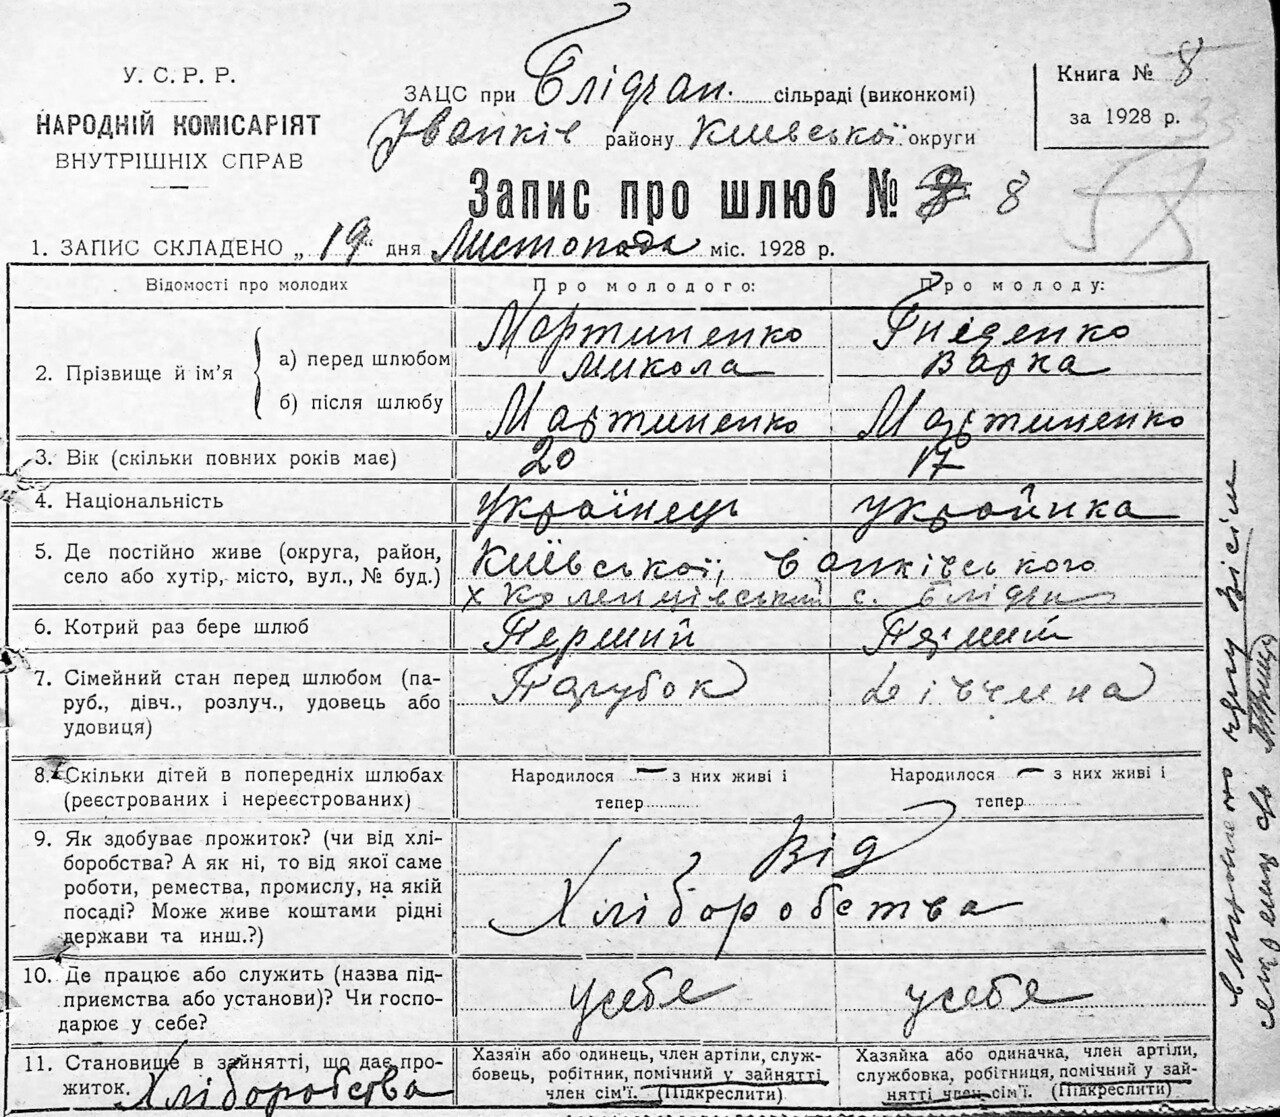 У. С. Р. Р.
НАРОДНІЙ КОМІСАРІЯТ
ВНУТРІШНІХ СПРАВ
ЗАЦС при Блідчан. сільраді (виконкомі)
Іванків району Київської округи
Книга № 8
за 1928 р.
Запис про шлюб № 8
1. ЗАПИС СКЛАДЕНО „19" дня Листопада міс. 1928 р.
Відомості про молодих
Про молодого:
Про молоду:
2. Прізвище й ім'я
а) перед шлюбом
Мартиненко
Микола
Гніденко
Варка
б) після шлюбу
Мартиненко
Мартиненко
3. Вік (скільки повних років має)
20
17
4. Національність
Українець
українка
5. Де постійно живе (округа, район,
село або хутір, місто, вул., № буд.)
Київської, Іванківського
х Коленцівський с. Блідча
6. Котрий раз бере шлюб
Перший
Перший
7. Сімейний стан перед шлюбом (па-
руб., дівч., розлуч., удовець або
удовиця)
Парубок
Дівчина
8. Скільки дітей в попередніх шлюбах
(реєстрованих і нереєстрованих)
Народилося — з них живі і
тепер
Народилося — з них живі і
тепер
9. Як здобуває прожиток? (чи від хлі-
боробства? А як ні, то від якої саме
роботи, ремества, промислу, на якій
посаді? Може живе коштами рідні
держави та инш.?)
Від
Хліборобства
10. Де працює або служить (назва під-
приємства або установи)? Чи госпо-
дарює у себе?
усебе
усебе
11. Становище в зайнятті, що дає про-
житок. Хліборобства
Хазяїн або одинець, член артіли, служ-
бовець, робітник, помічний у зайнятті
член сім'ї. (Підкреслити)
Хазяйка або одиначка, член артіли,
службовка, робітниця, помічний у зай-
нятті член сім'ї. (Підкреслити)